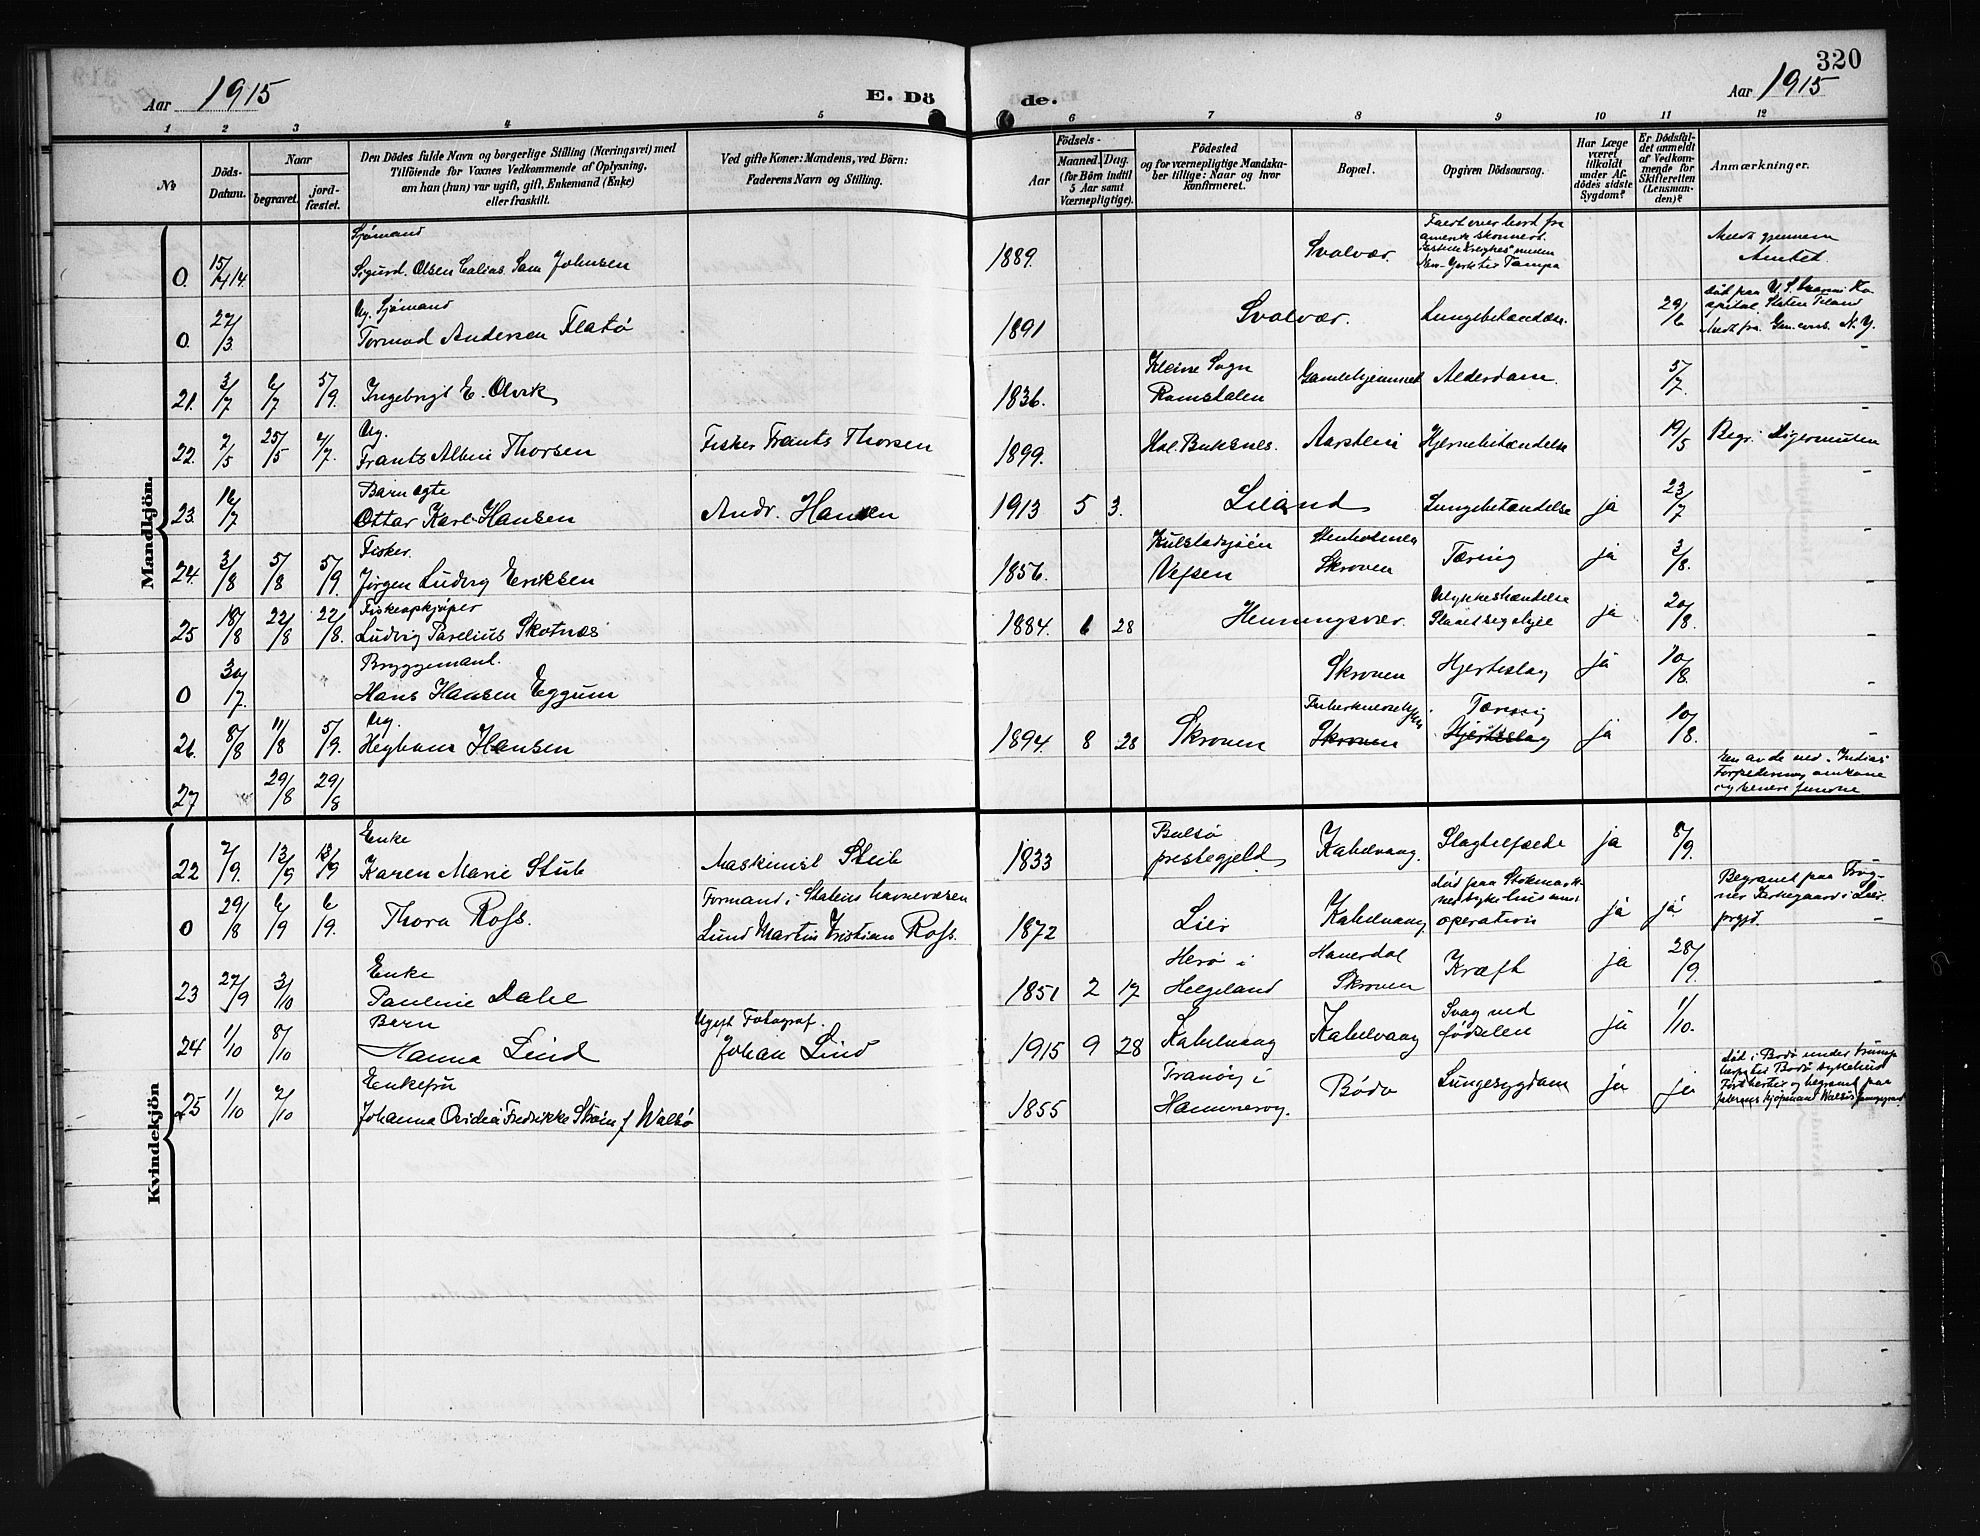 320
Aar 1915
E. Dö
de.
Aar 1915
1 2 3 4 5 6 7 8 9 10 11 12
No
Döds-
Datum.
Naar
begravet.
jord-
fæstet.
Den Dödes fulde Navn og borgerlige Stilling (Næringsvei) med
Tilföiende for Voxnes Vedkommende af Oplysning,
om han (hun) var ugift, gift, Enkemand (Enke)
eller fraskilt.
Ved gifte Koner: Mandens, ved Börn:
Faderens Navn og Stilling.
Födsels-
Aar
Maaned.
Dag.
(for Börn indtil
5 Aar samt
Værnepligtige).
Födested
og for værnepligtige Mandska-
ber tillige: Naar og hvor
konfirmeret.
Bopæl.
Opgiven Dödsaarsag.
Har Læge
været
tilkaldt
under Af-
dödes sidste
Sygdom?
Er Dödsfal-
det anmeldt
af Vedkom-
mende for
Skifteretten
(Lensman-
den)?
Anmærkninger.
Mandkjön.
Sjømand
0. 15/ 14. Sigurd Olsen Johnsen 1889. Svolvær. New-York til Tampa
Meldt gjennem
Amtet.
Ug. Sjømand
0. 27/3 Tormod Andersen Flatø 1891 Svolvær. 29/6
Meldt fra Gen.cons. N.Y.
21. 3/7 6/7 5/9. Ingebrigt E. Olvik 1836. Sogn
Romsdalen Gamlehjemmet Alderdom. 5/7.
Ug.
22. 7/5 25/5 Frants Albin Thorsen Fisker Frants Thorsen 1899. Hol. Buksnes. Hjernebetændelse 19/5 Begr. Digermulen
Barn ægte
23. 16/7 Ottar Karl Hansen Andr. Hansen 1913 5 3. Liland Lungebetændelse ja 23/7
Fisker.
24. 3/8 5/8 5/9. Jørgen Ludvig Eriksen 1856. Vefsen Skroven Tæring ja 3/8.
Fiskeopkjøper
25 18/8 22/8 22/8. Ludvig Parelius Skotnæs 1884. 6 28 Henningsvær. Ulykkeshændelse ja 20/8.
Bryggemand.
0 30/7. Hans Hansen Eggum Skroven Hjerteslag ja 10/8.
Ug.
26. 8/8 11/8 5/9. Hansen 1894. 8 28 Skroven Skroven Tæring
Hjerteslag ja 10/8.
27 29/8 29/8 En av de ved "Indias"
Torpedering omkomne
Kvindekjön
Enke
22 7/9. 13/9 13/9 Karen Marie Stub Maskinist Stub 1833
prestegjeld Kabelvaag. ja 8/9.
Formand i Statens havnevæsen
0 29/8 6/9 6/9. Thora Ross. Lund Martin Kristian Ross. 1872 Lier Kabelvaag
operation ja ja
Begravet paa Frog-
ner Kirkegaard i Lier
prgjd.
Enke
23 27/9 3/10 Pauline Dahl 1851 2 17 Herø i
Helgeland Skroven Kræft ja 28/9.
Barn Ugift Fotograf.
24 1/10 8/10 Nanna Lind Johan Lind 1915 9 28 Kabelvaag Kabelvaag Svag ved
fødselen ja 1/10.
Enkefru
25 1/10 7/10 Johanna Ovidia Fredrikke Strøm f Walsø 1855 Tranøy i
Hammerøy. Bodø Lungesygdom ja ja